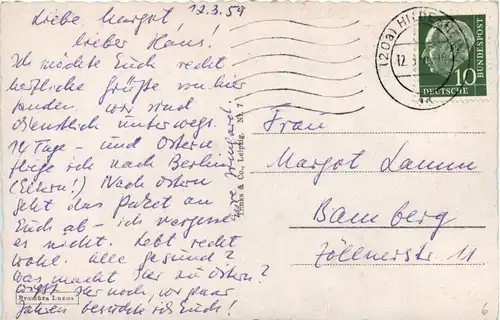 12.3.59
Liebe Margot,
lieber Hans!
Ich möchte Euch recht
herzliche Grüße von hier
senden. Wir sind
ordentlich unterwegs.
14 Tage – und Ostern
fliege ich nach Berlin
(Eltern!) Nach Ostern
geht das Paket an
Euch ab – ich vergesse
es nicht. Lebt recht
wohl. Alle gesund?
Was macht Ihr zu Ostern?
Ihr noch, vor paar
Jahren besuchte ich Euch!
Eure Irmgard.
Brontura Luxus
& Co., Leipzig. Nr. 7
(20a) HILDESHEIM
12.3.
10
DEUTSCHE
BUNDESPOST
Frau
Margot Lamm
Bamberg
Zöllnerstr. 11
6